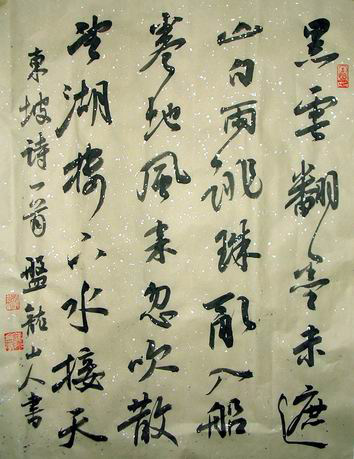 黑雲翻墨未遮
山白雨跳珠亂入船
卷地風来忽吹散
望湖樓下水接天
東坡诗一首 盤山人書